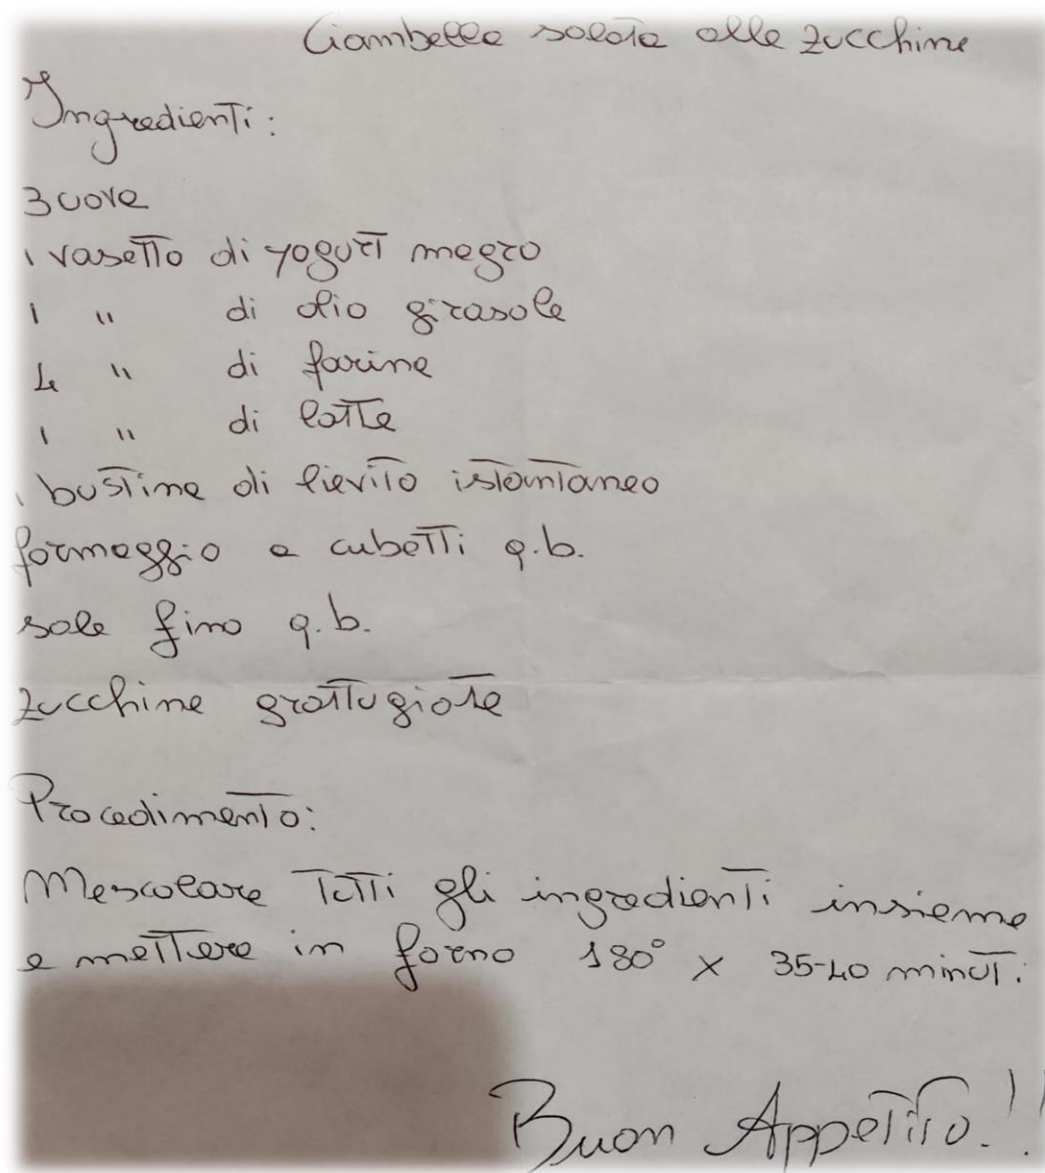 Ciambella salata alle zucchine
Ingredienti:
3 uova
1 vasetto di yogurt magro
1 " di olio girasole
4 " di farina
1 " di latte
1 bustina di lievito istantaneo
formaggio a cubetti q.b.
sale fino q.b.
zucchine grattugiate
Procedimento:
Mescolare tutti gli ingredienti insieme
e mettere in forno 180° x 35-40 minuti.
Buon Appetito!!